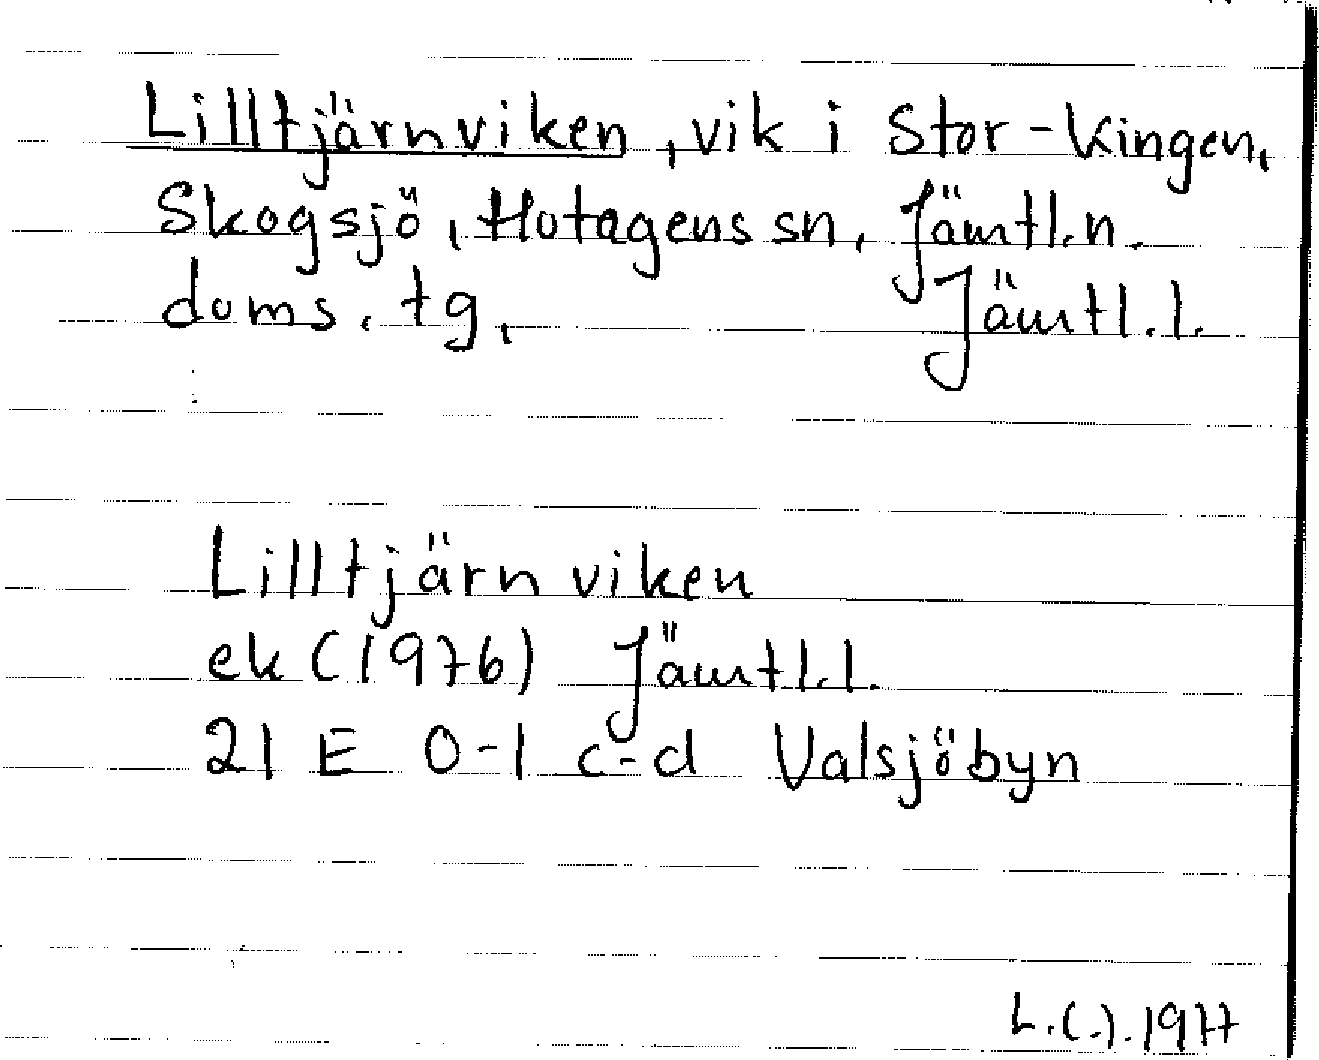 Lilltjärnviken, vik i Stor-Kingen,
Skogsjö, Hotagens sn, Jämtl.n.
doms. tg, Jämtl.l.
Lilltjärnviken
ek (1976) Jämtl.l.
21 E 0-1 c-d Valsjöbyn
L.(.).1977